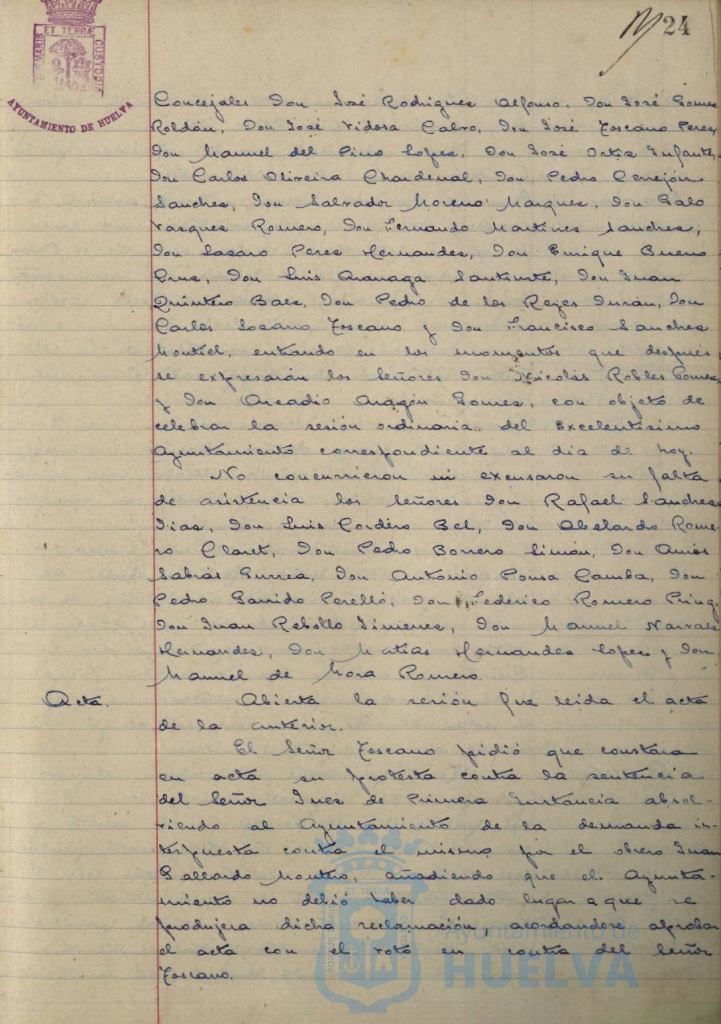 24
ET TERRÆ
MARIS
CUSTODIA
AYUNTAMIENTO DE HUELVA
Concejales Don José Rodrigues Alfonso, Don José Gomes
Roldán, Don José Vidosa Calvo, Don José Toscano Peres,
Don Manuel del Pino Lopes, Don José Ortis Infante,
Don Carlos Oliveira Chardenal, Don Pedro Cerrejón
Sanches, Don Salvador Moreno Marques, Don Galo
Vasques Romero, Don Fernando Martines Sanches,
Don Lasaro Peres Hernandes, Don Enrique Bueno
Crus, Don Luis Aranaga Santurte, Don Juan
Quintero Baes, Don Pedro de los Reyes Durán, Don
Carlos Losano Toscano y Don Francisco Sanches
Montiel, entrando en los momentos que después
se expresarán los Señores Don Nicolás Robles Gomes
y Don Arcadio Aragón Gomes, con objeto de
celebrar la sesión ordinaria del Excelentisimo
Ayuntamiento correspondiente al dia de hoy.
No concurrieron ni excusaron su falta
de asistencia los Señores Don Rafael Sanches
Dias, Don Luis Cordero Bel, Don Abelardo Rome-
ro Claret, Don Pedro Borrero Limón, Don Amós
Sabrás Gurrea, Don Antonio Ponsa Camba, Don
Pedro Garrido Perelló, Don Federico Romero
Don Juan Rebollo Jimenes, Don Manuel Narvaes
Hernandes, Don Matias Hernandes Lopes y Don
Manuel de Mora Romero.
Acta. Abierta la sesión fue leida el acta
de la anterior.
El Señor Toscano pidió que constara
en acta su protesta contra la sentencia
del Señor Jues de Primera Instancia absol-
viendo al Ayuntamiento de la demanda in-
terpuesta contra el mismo por el obrero Juan
Gallardo Montero, añadiendo que el Ayunta-
miento no debió haber dado lugar a que se
produjera dicha reclamación, acordandose aprobar
el acta con el voto en contra del Señor
Toscano.
Ayuntamiento de
HUELVA